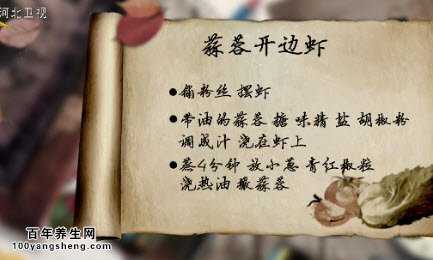 河北卫视
蒜蓉开边虾
●铺粉丝 摆虾
●带油的蒜蓉 糖 味精 盐 胡椒粉
调成汁 浇在虾上
●蒸4分钟 放小葱 青红椒粒
浇热油 撒蒜蓉
百年养生网
100yangsheng.com